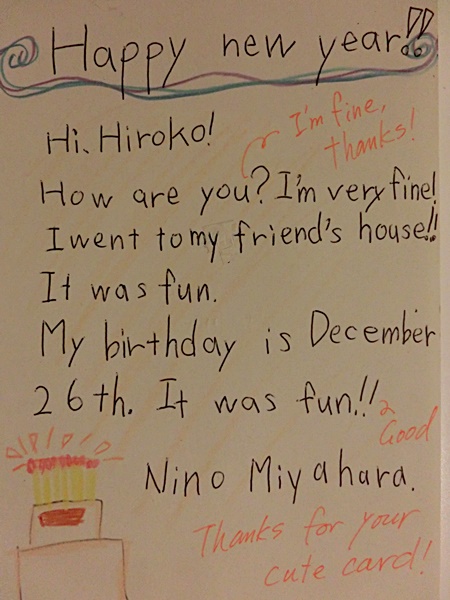 Happy new year!!
Hi, Hiroko!
I'm fine,
thanks!
How are you? I'm very fine!
I went to my friend's house!!
It was fun.
My birthday is December
26th. It was fun!!
Good
Nino Miyahara.
Thanks for your
cute card!